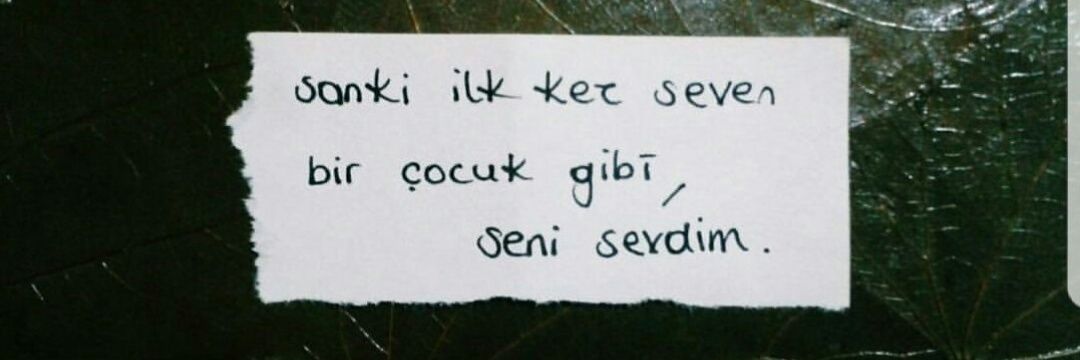 sanki ilk kez seven
bir çocuk gibi,
seni sevdim.